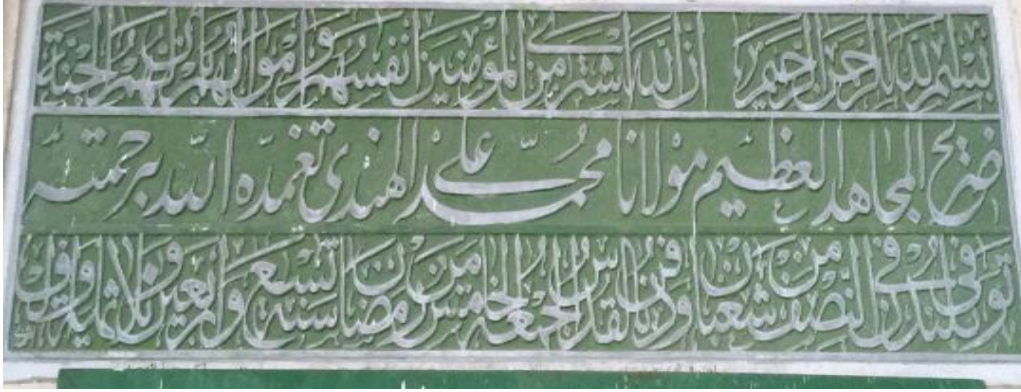 بسم الله الرحمن الرحيم ان الله اشترى من المؤمنين انفسهم واموالهم بان لهم الجنة
ضريح المجاهد العظيم مولانا محمد علي الهندي تغمده الله برحمته
توفى بلندن في النصف من شعبان ودفن في القدس يوم الجمعة خامس من رمضان سنة تسع واربعين وثلاثماية والف